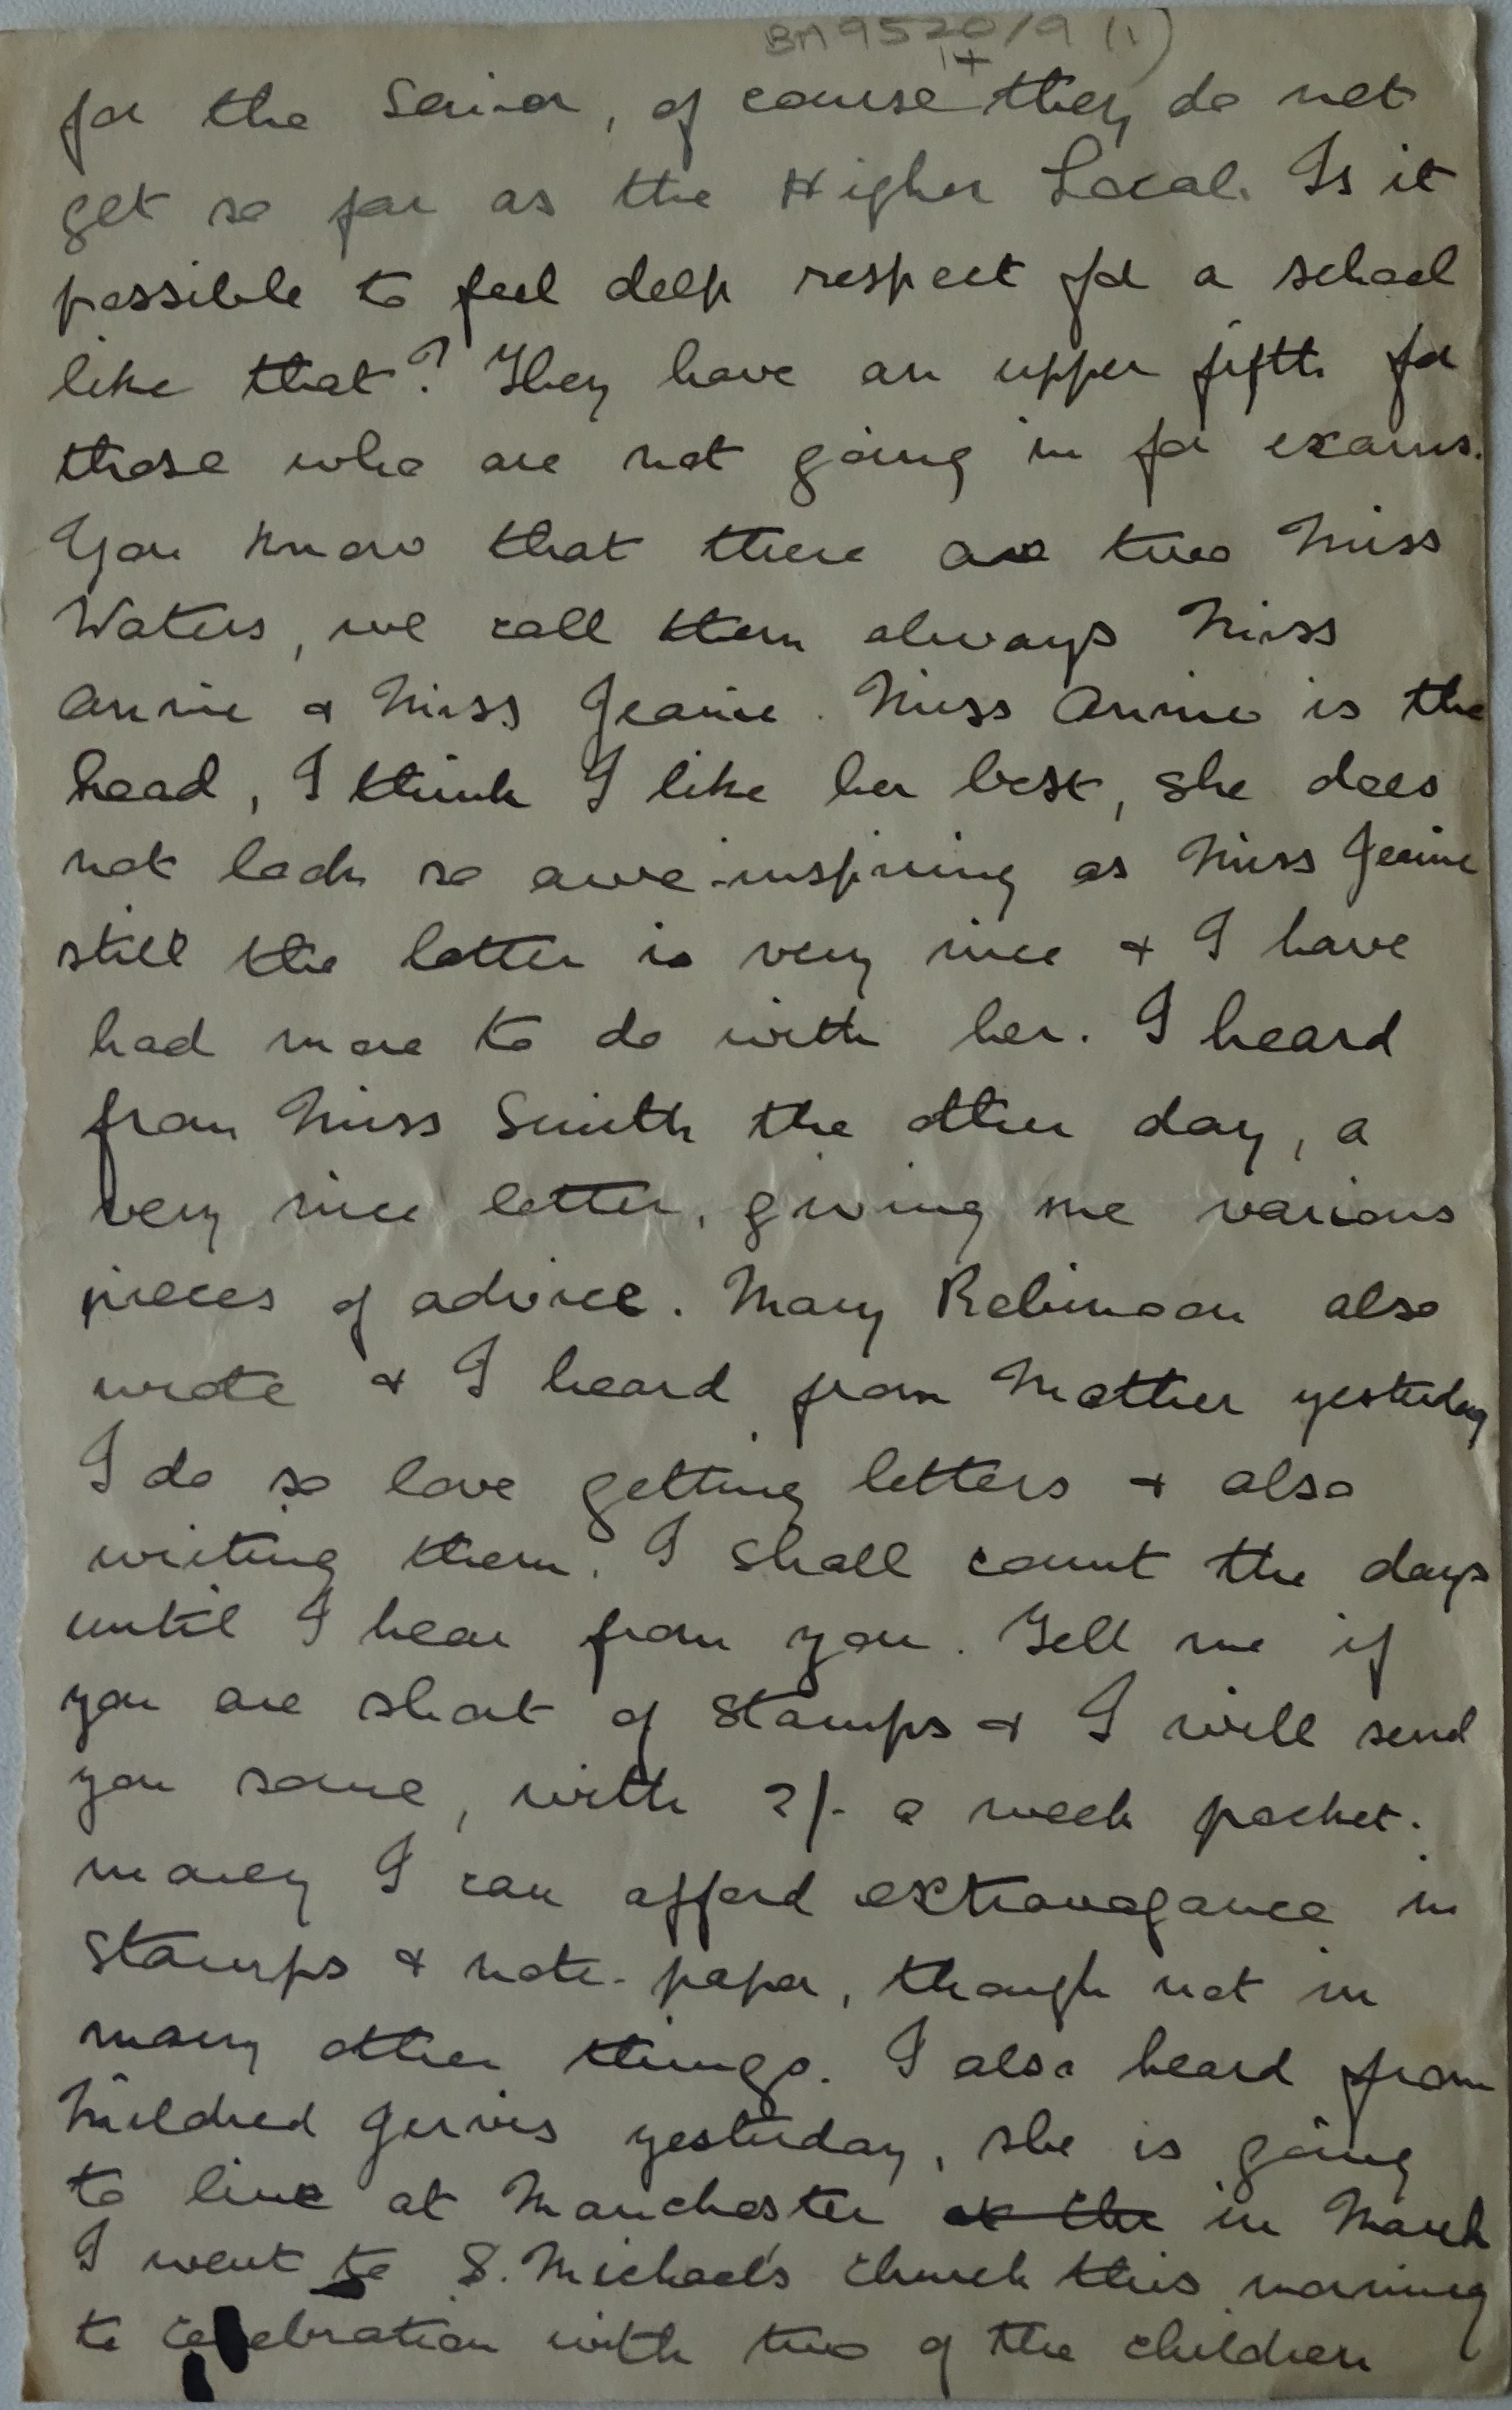 BM9520/9 (1)
for the Senior, of course they do not
get so far as the Higher Local. Is it
possible to feel deep respect for a school
like that? They have an upper fifth for
those who are not going in for exams.
You know that there are two Miss
Waters, we call them always Miss
Annie & Miss Jeanie. Miss Annie is the
head, I think I like her best, she does
not look so awe-inspiring as Miss Jeanie
still the latter is very nice & I have
had more to do with her. I heard
from Miss Smith the other day, a
very nice letter, giving me various
pieces of advice. Mary Robinson also
wrote & I heard from Mother yesterday
I do so love getting letters & also
writing them. I shall count the days
until I hear from you. Tell me if
you are short of stamps & I will send
you some, with 2/- a week pocket-
money I can afford extravagance in
stamps & note-paper, though not in
many other things. I also heard from
Mildred Jervis yesterday, she is going
to live at Manchester in March
I went to S. Michael's church this morning
to celebration with two of the children